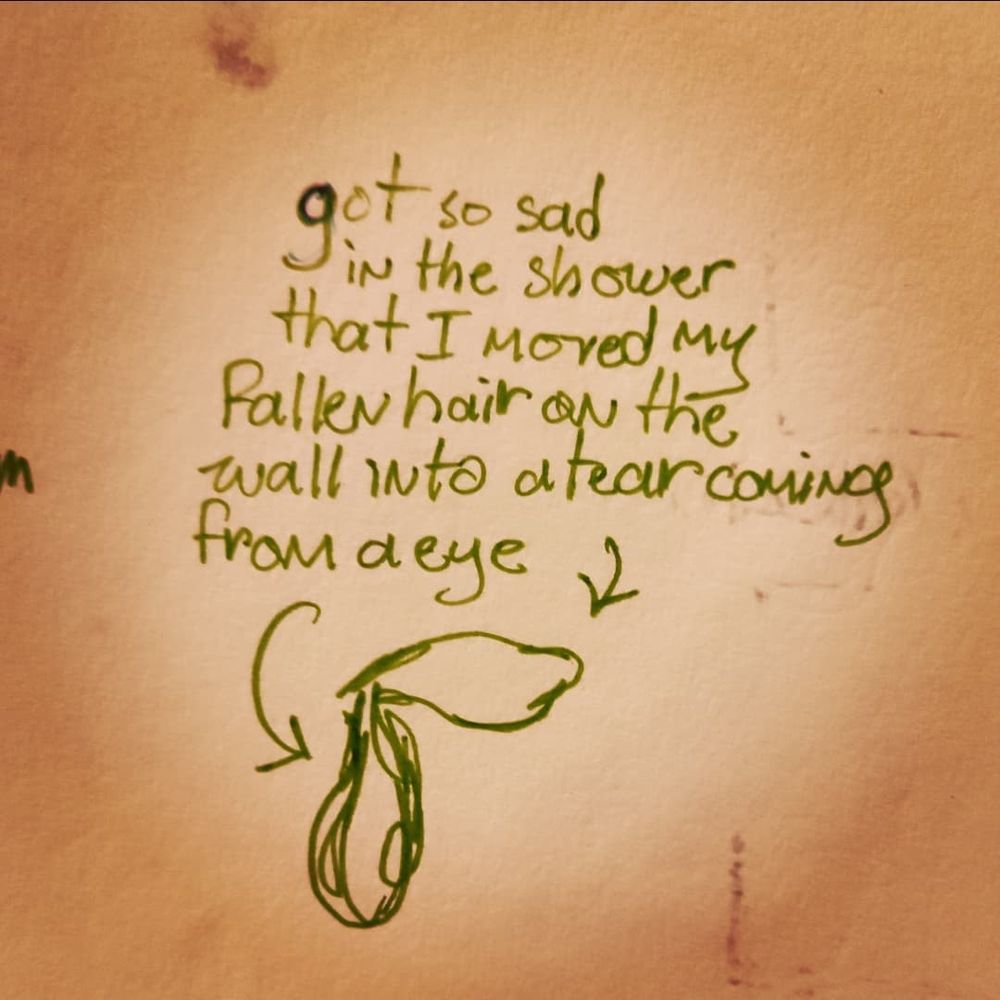 got so sad
in the shower
that I moved my
fallen hair on the
wall into a tear coming
from a eye
m